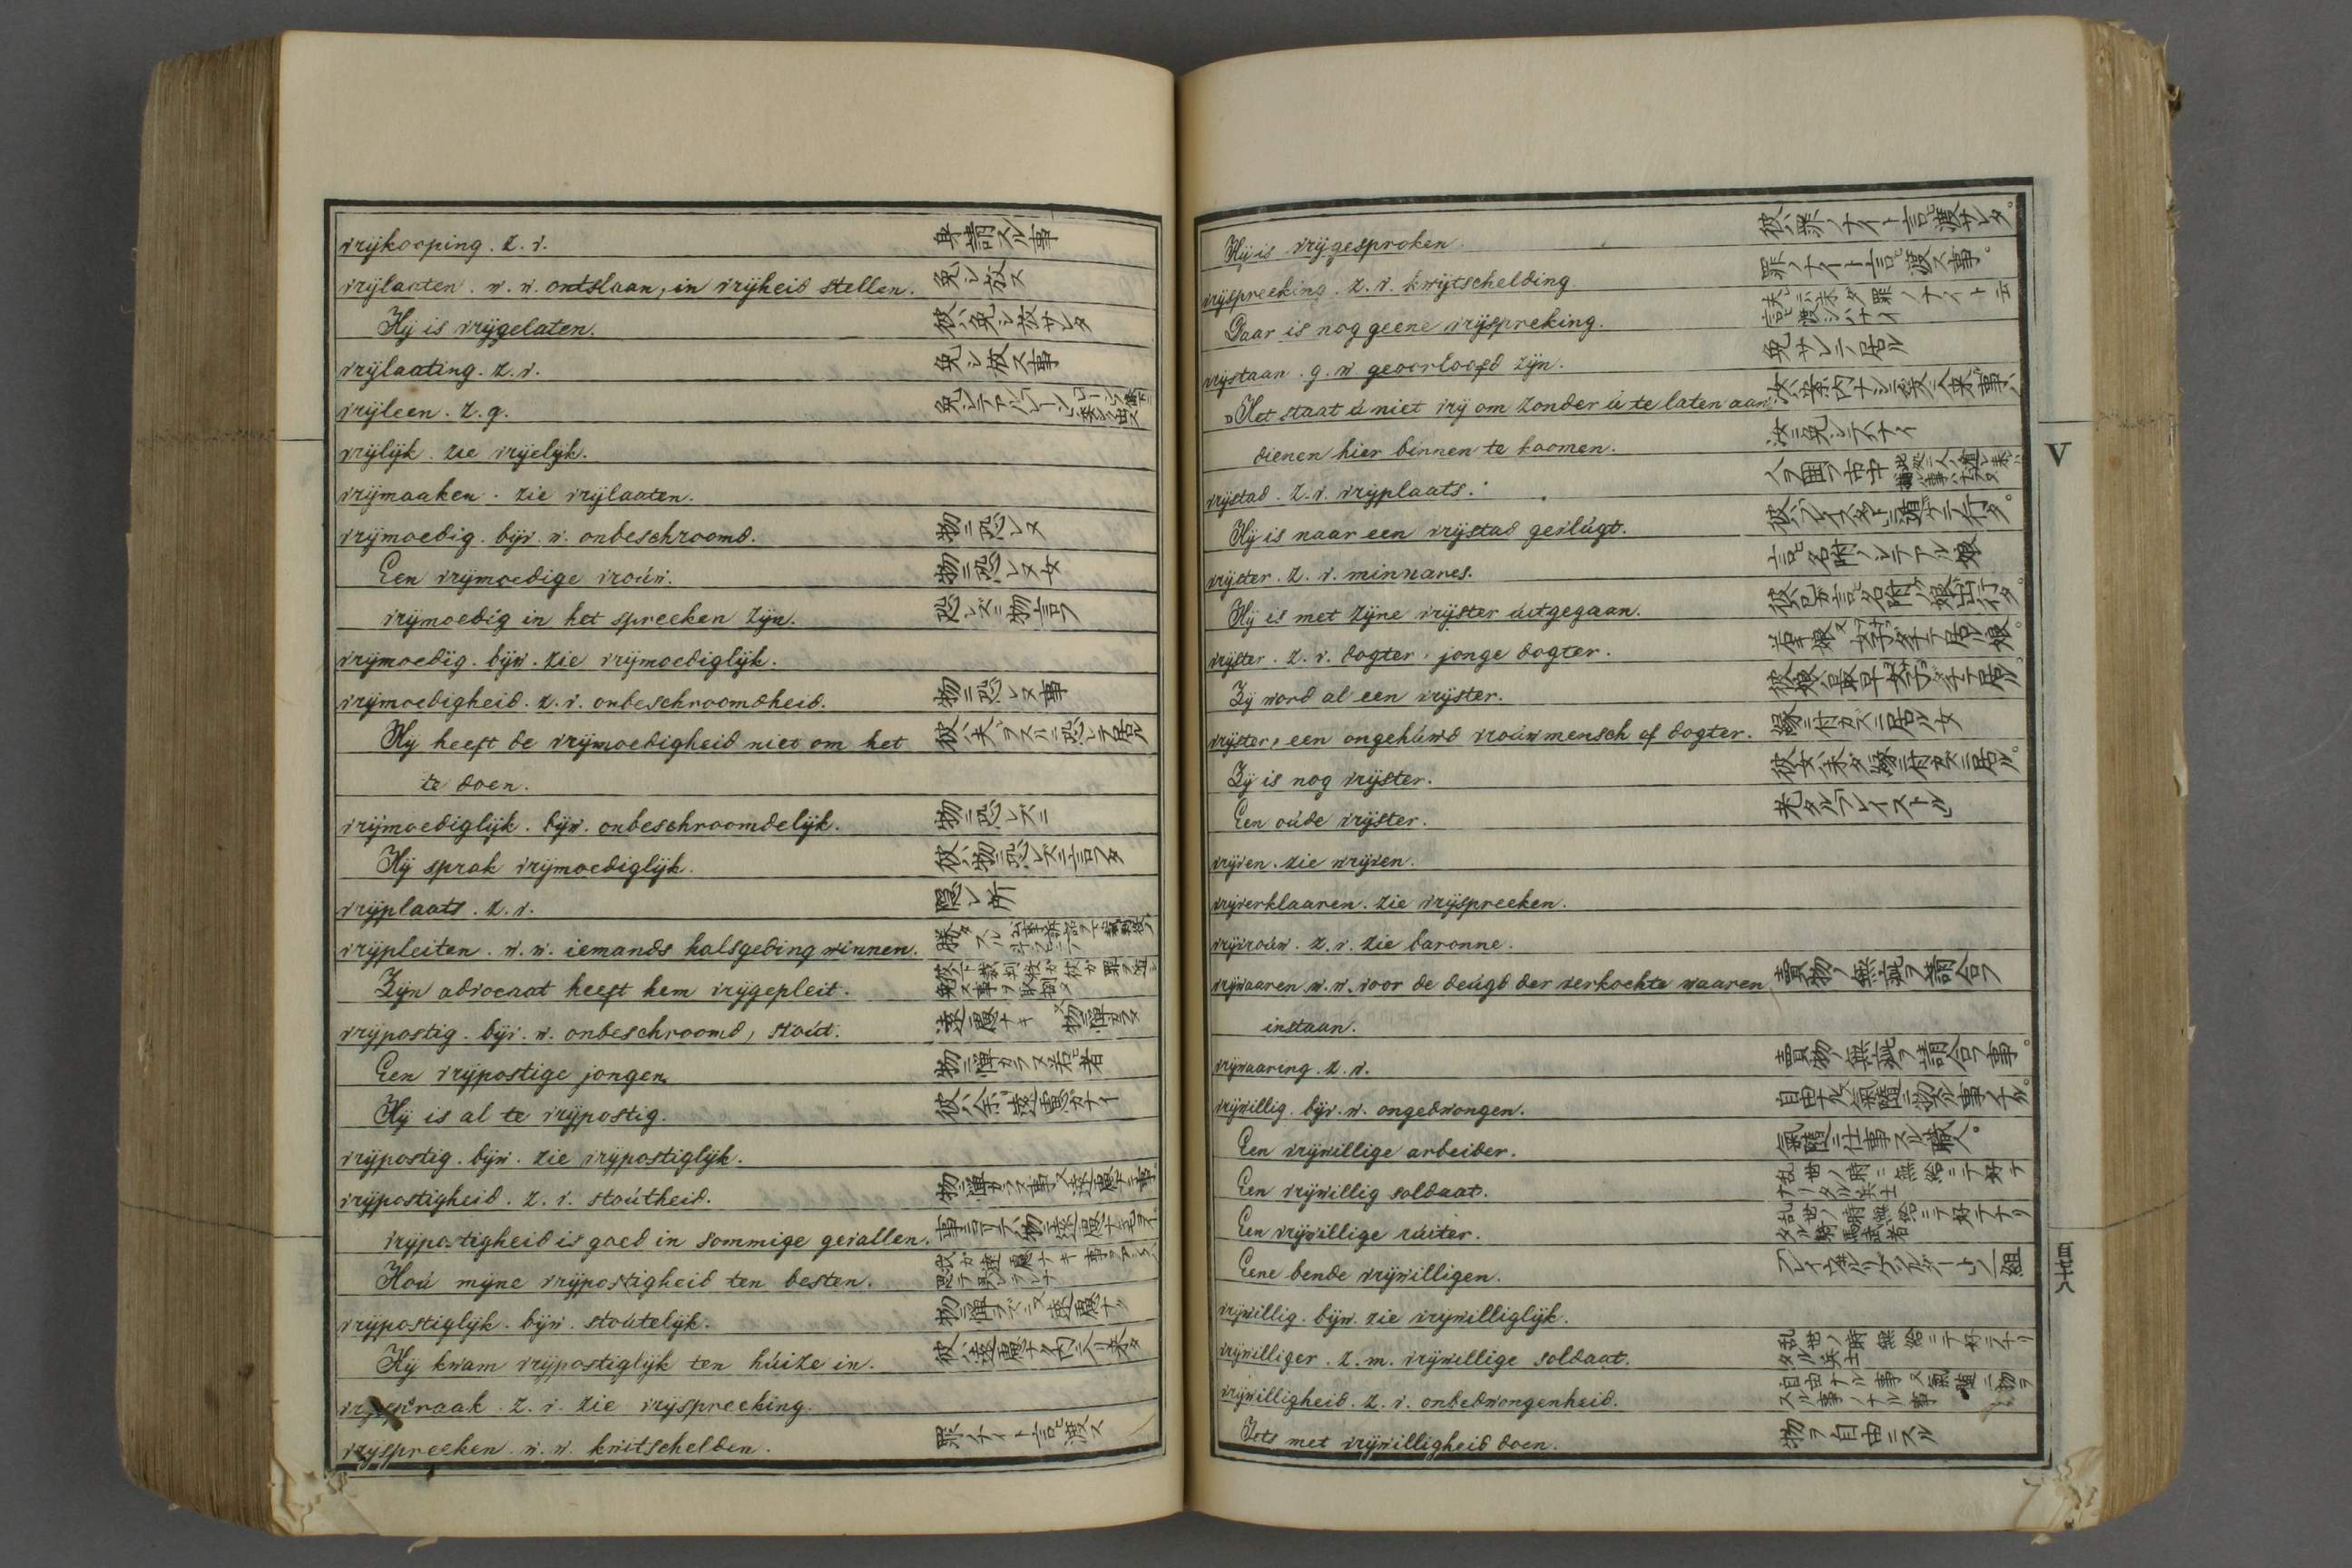 vrijkooping. z. v. 身請スル事
vrijlaaten. w. w. ontslaan, in vrijheid stellen. 免シ放ス
Hij is vrijgelaten. 彼ハ免シ放サレタ
vrijlaating. z. v. 免シ放ス事
vrijleen. z. g.
vrijlijk. zie vrijelijk.
vrijmaaken. zie vrijlaaten.
vrijmoedig. bijv. w. onbeschroomd. 物ニ恐レヌ
Een vrijmoedige vroúw. 物ニ恐レヌ女
vrijmoedig in het spreeken zijn. 恐レズニ物言フ
vrijmoedig. bijw. zie vrijmoediglijk.
vrijmoedigheid. z. v. onbeschroomdheid. 物ニ恐レヌ事
Hij heeft de vrijmoedigheid niet om het 彼ハ夫ヲスルニ恐レテ居ル
te doen.
vrijmoediglijk. bijw. onbeschroomdelijk. 物ニ恐レズニ
Hij sprak vrijmoediglijk. 彼ハ物ニ恐レズニ言フタ
vrijplaats. z. v. 隠レ所
vrijpleiten. w. w. iemands halsgeding winnen.
Zijn advocaat heeft hem vrijgepleit.
vrijpostig. bijv. w. onbeschroomd, stoút. 遠慮ナキ 又物ニ憚カラヌ
Een vrijpostige jongen. 物ニ憚カラヌ若者
Hij is al te vrijpostig. 彼ハ余リ遠慮ガナイ
vrijpostig. bijw. zie vrijpostiglijk.
vrijpostigheid. z. v. stoútheid. 物ニ憚カラヌ事又遠慮ナキ事
vrijpostigheid is goed in sommige gevallen.
Hoú mijne vrijpostigheid ten besten.
vrijpostiglijk. bijw. stoútelijk. 物ニ憚ラズニ又遠慮ナク
Hij kwam vrijpostiglijk ten húize in. 彼ハ遠慮ナク内ニ入リ来タ
vrijspraak. z. v. zie vrijspreeking.
vrijspreeken. w. w. kwitschelden. 罪ノナイト言ヒ渡ス
Hij is vrijgesproken. 彼ハ罪ノナイト言ヒ渡サレタ。
vrijspreeking. z. v. kwijtschelding. 罪ノナイト言ヒ渡ス事。
Daar is nog geene vrijspreking. 夫ニハ未タ罪ノナイト云言ヒ渡シハナイ
vrijstaan. g. w geoorloofd zijn. 免サレテ居ル
Het staat ú niet vrij om zonder ú te laten aan: 汝ハ案内ナシニ爰ニ入来ル事ハ
dienen hier binnen te koomen. 汝ニ免シテナイ
vrijstad. z. v. vrijplaats.
Hij is naar een vrijstad gevlúgt.
vrijster. z. v. minnares. 言ヒ名附ノシテアル娘
Hij is met zijne vrijster úitgegaan.
vrijster. z. v. dogter, jonge dogter.
Zij word al een vrijster.
vrijster, een ongehúwd vroúwmensch of dogter. 縁ニ付カズニ居ル女
Zij is nog vrijster. 彼女ハ未タ縁ニ付カズニ居ル。
Een oúde vrijster. 老タルフレイストル
vrijven. zie wrijven.
vrijverklaaren. zie vrijspreeken.
vrijvroúw. z. v. zie baronne.
vrijwaaren. w. w. voor de deúgd der verkochte waaren 賣物ノ無疵ヲ請合フ
instaan.
vrijwaaring. z. v. 賣物ノ無疵ヲ請合フ事。
vrijwillig. bijv. w. ongedwongen.
Een vrijwillige arbeider. 氣隨ニ仕事スル職人。
Een vrijwillig soldaat. 乱世ノ時ニ無給ニテ好テナリタル兵士
Een vrijwillige rúiter. 乱世ノ時無給ニテ好テナリタル騎馬武者
Eene bende vrijwilligen.
vrijwillig. bijw. zie vrijwilliglijk.
vrijwilliger. z. m. vrijwillige soldaat. 乱世ノ時無給ニテ好テナリタル兵士
vrijwilligheid. z. v. onbedwongenheid. 自由ナル事又氣隨ニ物ヲスル事ノナル事
Iets met vrijwilligheid doen. 物ヲ自由ニスル
V